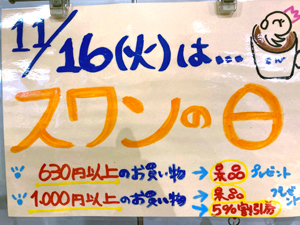 11/16(火)は...
スワンの日
630円以上のお買い物→景品プレゼント
1,000円以上のお買い物→景品プレゼント
→5%割引券